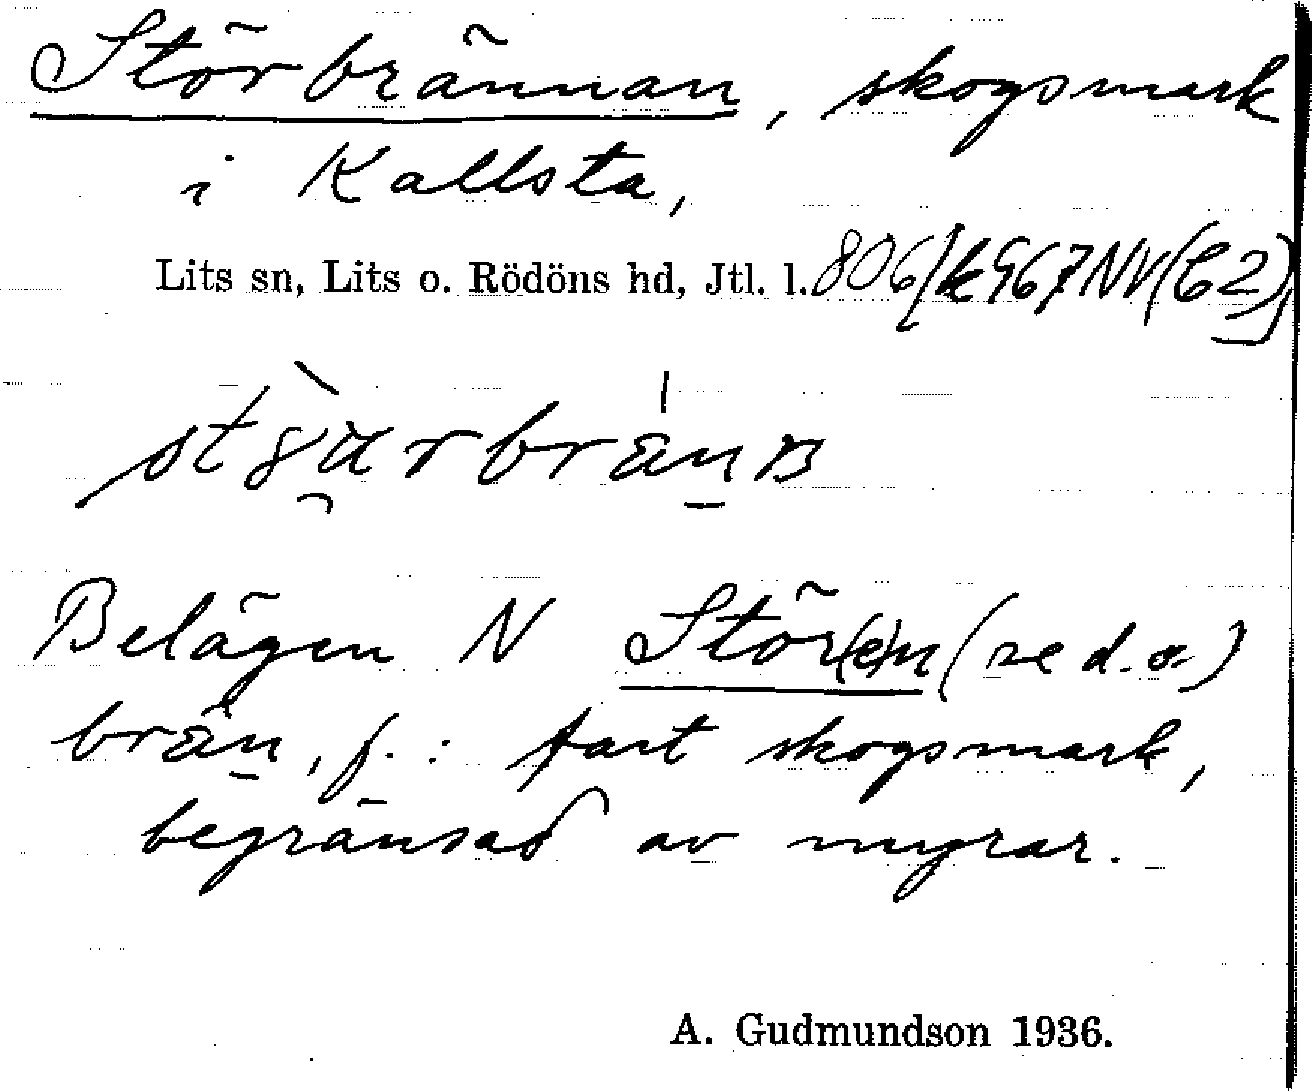 Störbrännan, skogsmark
i Kallsta,
Lits sn, Lits o. Rödöns hd, Jtl. l. 806/k967NV(C2)
Belägen N Stör(e)n (se d. o.)
brän, f.: fast skogsmark,
begränsad av myrar.
A. Gudmundson 1936.